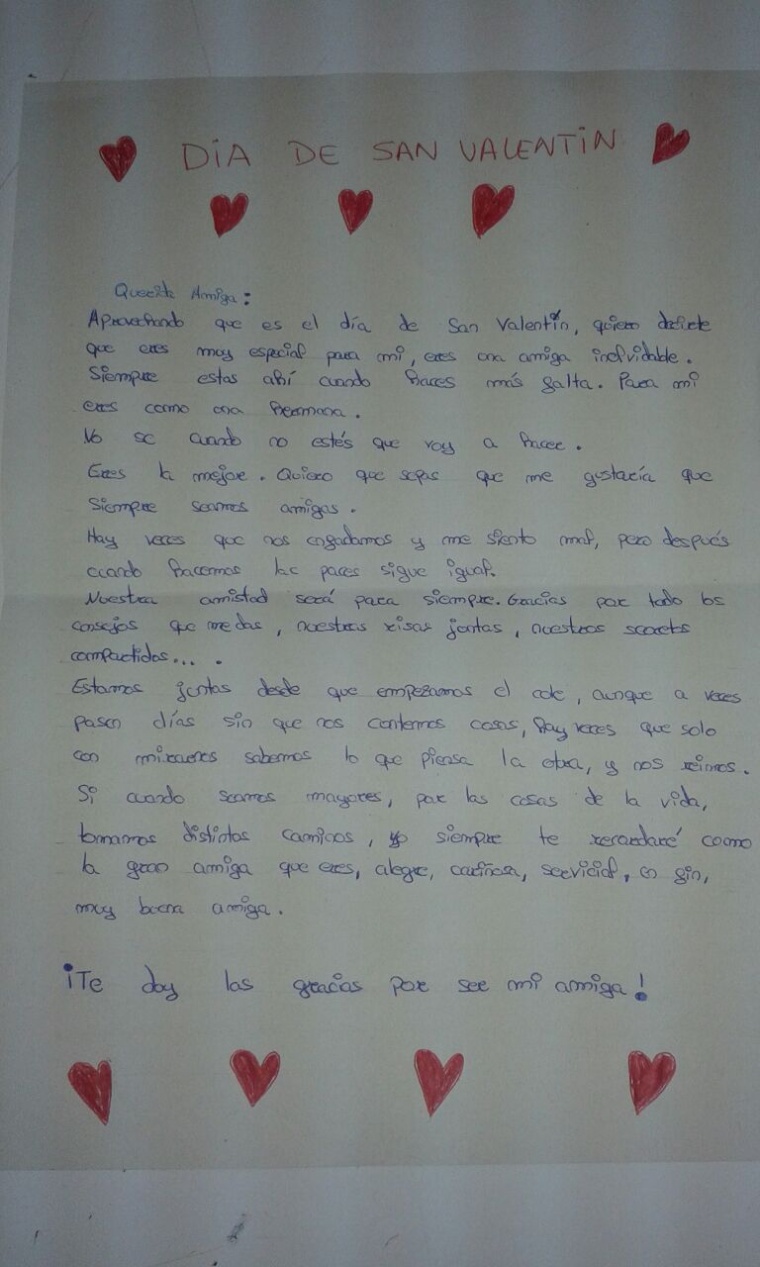 DÍA DE SAN VALENTÍN
Querida Amiga:
Aprovechando que es el día de San Valentín, quiero decirte
que eres muy especial para mi, eres una amiga inolvidable.
Siempre estas ahí cuando haces más falta. Para mi
eres como una hermana.
No se cuando no estés que voy a hacer.
Eres la mejor. Quiero que sepas que me gustaría que
Siempre seamos amigas.
Hay veces que nos enfadamos y me siento mal, pero después
cuando hacemos las paces sigue igual.
Nuestra amistad será para siempre. Gracias por todo los
consejos que me das, nuestras risas juntas, nuestros secrets
compartidos....
Estamos juntas desde que empezamos el cole, aunque a veces
pasen días sin que nos contemos cosas, hay veces que solo
con mirarnos sabemos lo que piensa la otra, y nos reimos.
Si cuando seamos mayores, por las cosas de la vida,
tomamos distintos caminos, yo siempre te recordaré como
la gran amiga que eres, alegre, cariñosa, servicial, en fin,
muy buena amiga.
¡Te doy las gracias por ser mi amiga!